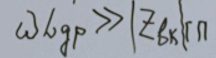 ωLдр ≫ |Zвх|гп